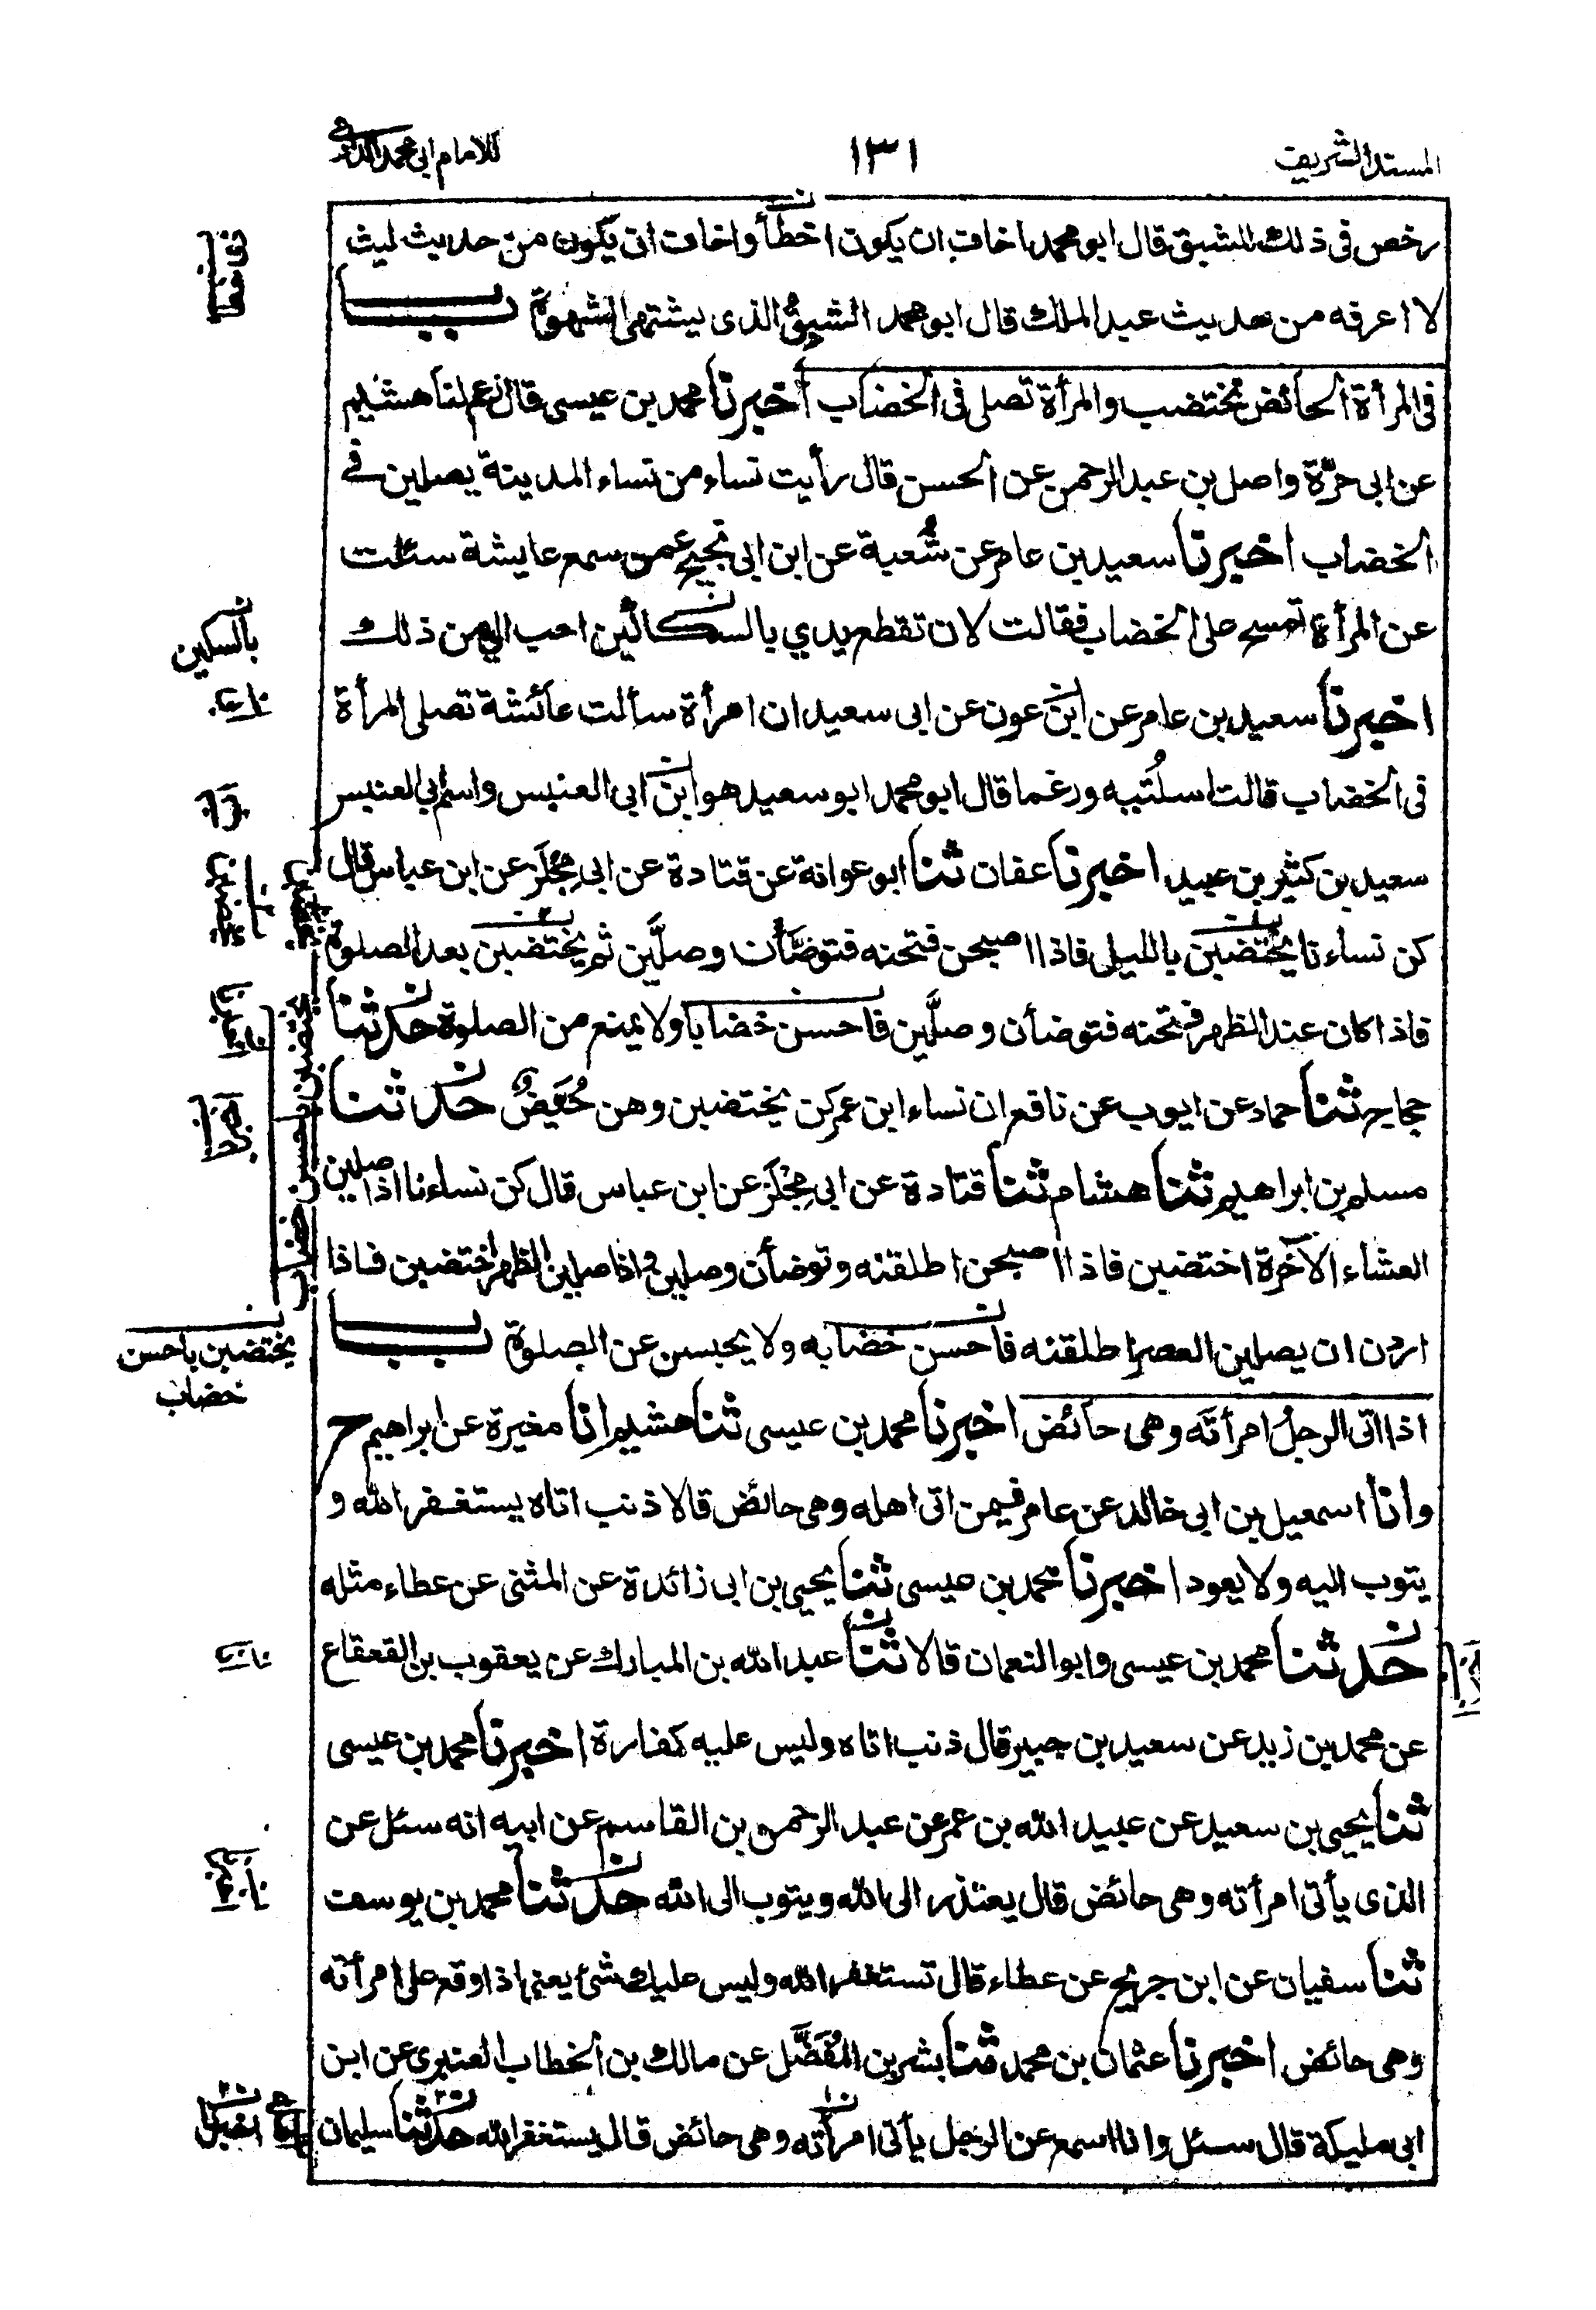 المسند الشريف ١٣١ للامام ابى محمد الدارمى
رخص فى ذلك للشبق قال ابو محمد اخاف ان يكون اخطأ واخاف ان يكون من حديث ليث
لا اعرفه من حديث عبد الملك قال ابو محمد الشبق الذى يشتهى الشهوة باب
فى المرأة الحائض تختضب والمرأة تصلى فى الخضاب أخبرنا محمد بن عيسى قال زعم لنا هشيم
عن ابى حرّة واصل بن عبد الرحمن عن الحسن قال رأيت نساء من نساء المدينة يصلين فى
الخضاب اخبرنا سعيد بن عامر عن شُعبة عن ابن ابى نجيح عمن سمع عايشة سئلت
عن المرأة تمسح على الخضاب فقالت لان تقطع يدي بالسكاكين احب الى من ذلك
بالسكين
اخبرنا سعيد بن عامر عن ابن عون عن ابى سعيد ان امرأة سألت عائشة تصلى المرأة
فى الخضاب قالت اسلُتيه ورغما قال ابو محمد ابو سعيد هو ابن ابى العنبس واسم ابى العنبس
سعيد بن كثير بن عبيد اخبرنا عفان ثنا ابو عوانة عن قتادة عن ابى مِجْلَز عن ابن عباس قال
كن نساءنا يختضبن بالليل فاذا اصبحن فتحنه فتوضَّأن وصلَّين ثم يختضبن بعد الصلوة
فاذا كان عند الظهر فتحنه فتوضأن وصلَّين فاحسن خضابا ولا يمنع من الصلوة حدثنا
حجاج ثنا حماد عن ايوب عن نافع ان نساء ابن عمر كن يختضبن وهن حُيَّضٌ حدثنا
مسلم بن ابراهيم ثنا هشام ثنا قتادة عن ابى مِجْلَز عن ابن عباس قال كن نساءنا اذا صلين
العشاء الآخرة اختضبن فاذا اصبحن اطلقنه وتوضأن وصلين واذا صلين الظهر اختضبن فاذا
اردن ان يصلين العصر اطلقنه فاحسن خضابه ولا يحبسن عن الصلوة باب
يختضبن باحسن
خضاب
اذا اتى الرجل امرأته وهى حائض اخبرنا محمد بن عيسى ثنا هشيم انا مغيرة عن ابراهيم ح
وانا اسمعيل بن ابى خالد عن عامر فيمن اتى اهله وهى حائض قالا ذنب اتاه يستغفر الله و
يتوب اليه ولا يعود اخبرنا محمد بن عيسى ثنا يحيى بن ابى زائدة عن المثنى عن عطاء مثله
حدثنا محمد بن عيسى وابو النعمان قالا ثنا عبد الله بن المبارك عن يعقوب بن القعقاع
عن محمد بن زيد عن سعيد بن جبير قال ذنب اتاه وليس عليه كفارة اخبرنا محمد بن عيسى
ثنا يحيى بن سعيد عن عبيد الله بن عمر عن عبد الرحمن بن القاسم عن ابيه انه سئل عن
الذى يأتى امرأته وهى حائض قال يعتذر الى الله ويتوب الى الله حدثنا محمد بن يوسف
ثنا سفيان عن ابن جريج عن عطاء قال تستغفر الله وليس عليك شئ يعنى اذا وقع على امرأته
وهى حائض اخبرنا عثمان بن محمد ثنا بشر بن المُفَضَّل عن مالك بن الخطاب العنبرى عن ابن
ابى مليكة قال سئل وانا اسمع عن الرجل يأتى امرأته وهى حائض قال يستغفر الله حدثنا سليمان